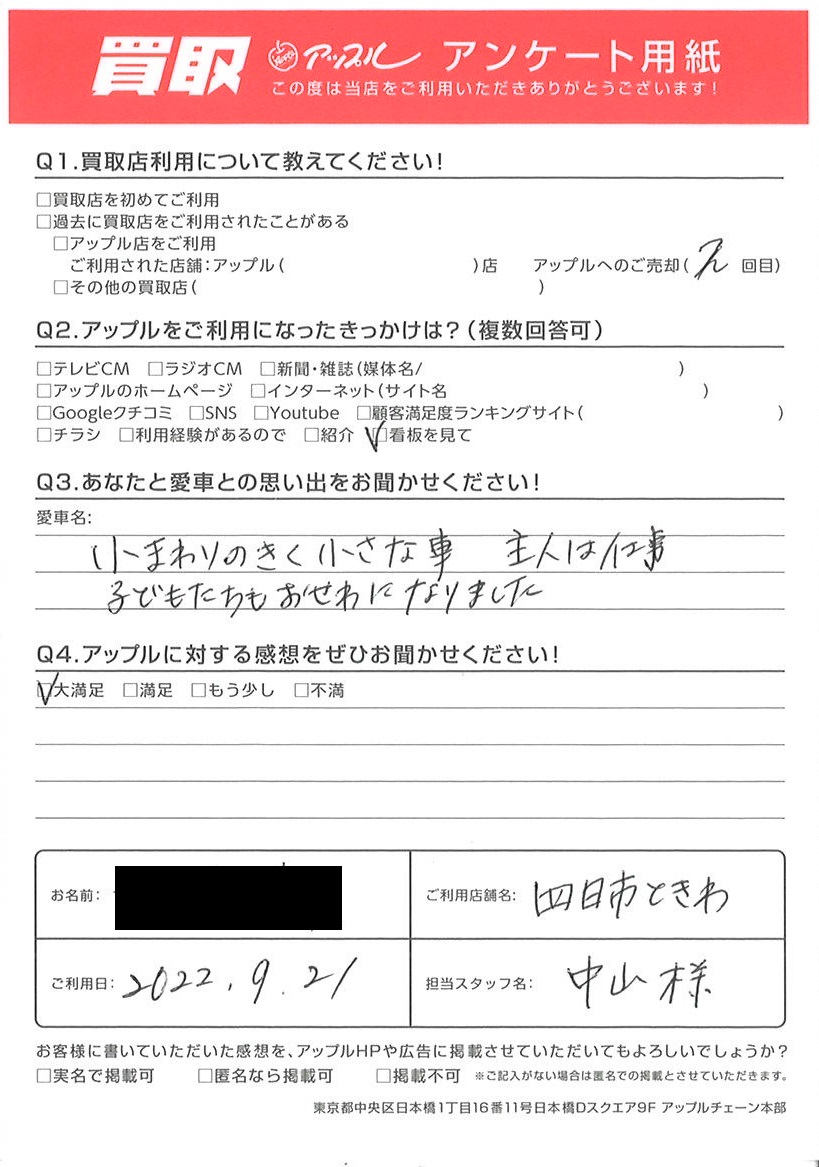 買取 アップル アンケート用紙
この度は当店をご利用いただきありがとうございます!
Q1.買取店利用について教えてください!
□買取店を初めてご利用
□過去に買取店をご利用されたことがある
□アップル店をご利用
ご利用された店舗:アップル( )店 アップルへのご売却( 回目)
□その他の買取店( )
Q2.アップルをご利用になったきっかけは?(複数回答可)
□テレビCM □ラジオCM □新聞・雑誌(媒体名/ )
□アップルのホームページ □インターネット(サイト名 )
□Googleクチコミ □SNS □Youtube □顧客満足度ランキングサイト( )
□チラシ □利用経験があるので □紹介 ☑看板を見て
Q3.あなたと愛車との思い出をお聞かせください!
愛車名:
小まわりのきく小さな車 主人は仕事
子どもたちもおせわになりました
Q4.アップルに対する感想をぜひお聞かせください!
☑大満足 □満足 □もう少し □不満
お名前: ご利用店舗名: 四日市ときわ
ご利用日: 2022.9.21 担当スタッフ名: 中山様
お客様に書いていただいた感想を、アップルHPや広告に掲載させていただいてもよろしいでしょうか?
□実名で掲載可 □匿名なら掲載可 □掲載不可 ※ご記入がない場合は匿名での掲載とさせていただきます。
東京都中央区日本橋1丁目16番11号日本橋Dスクエア9F アップルチェーン本部